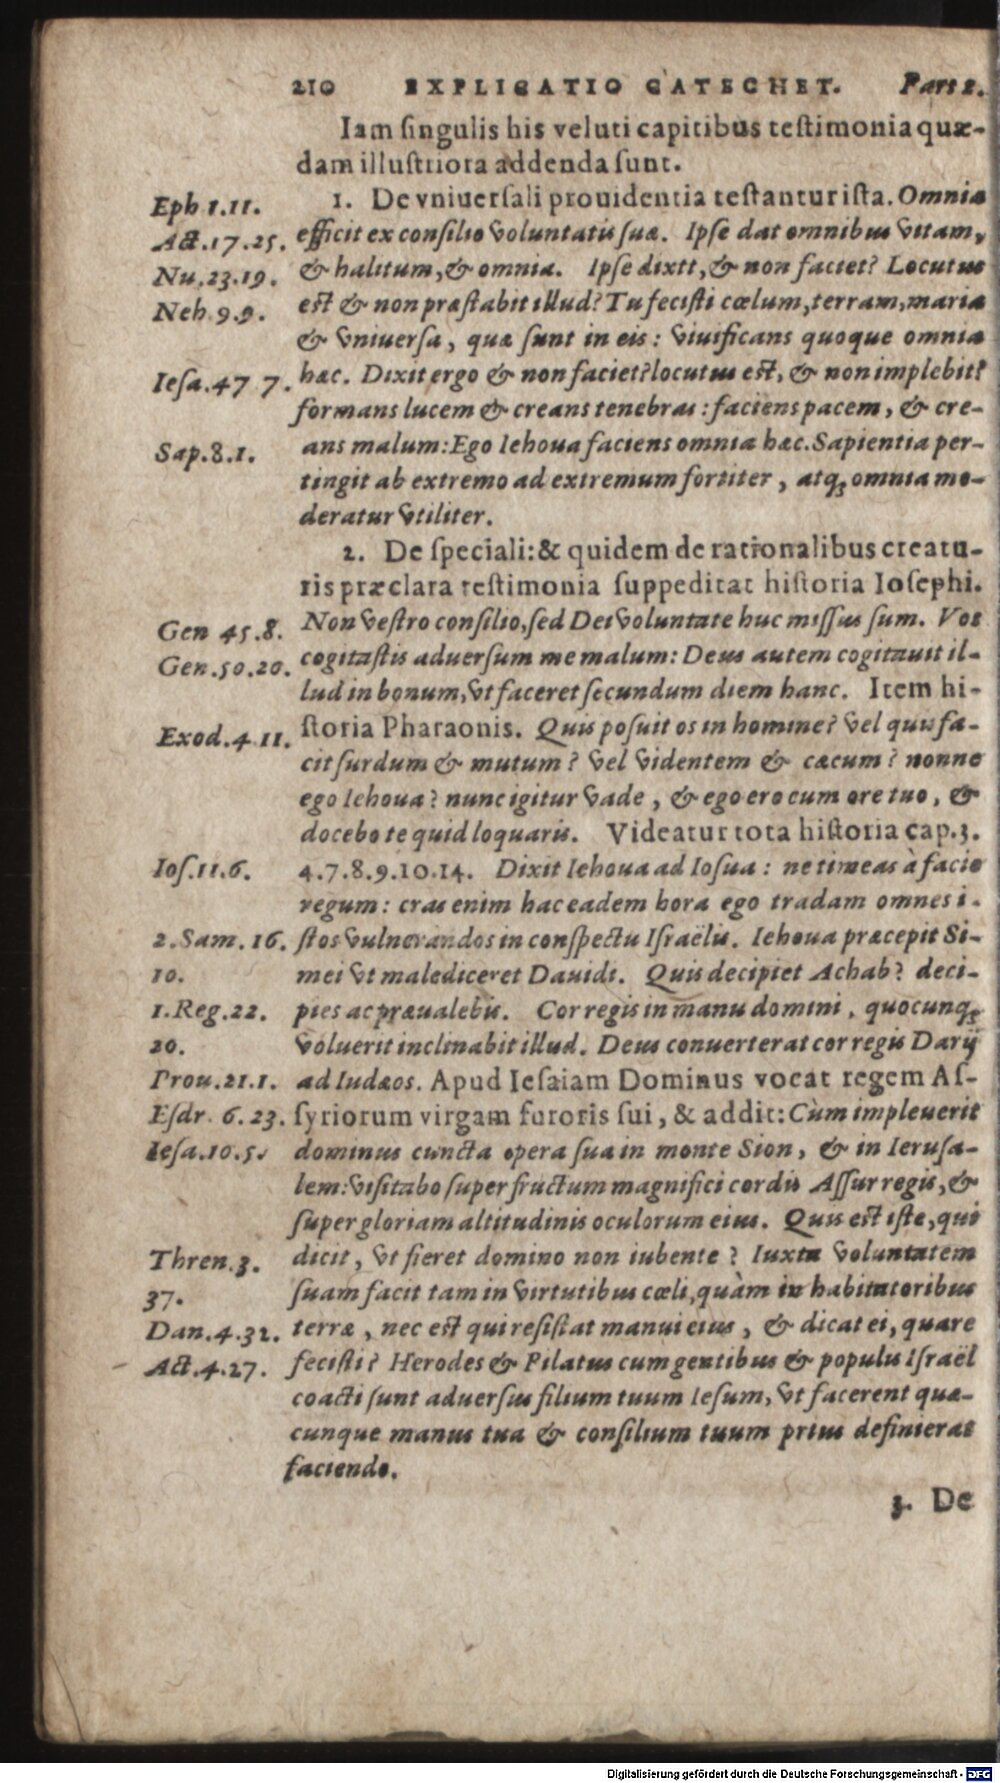 210 EXPLICATIO CATECHET. Pars 2.
Iam singulis his veluti capitibus testimonia quæ-
dam illustriora addenda sunt.
Eph 1.11.
1. De vniuersali prouidentia testantur ista. Omnia
Act.17.25.
efficit ex consilio voluntatis suæ. Ipse dat omnibus vitam,
Nu.23.19.
& halitum, & omnia. Ipse dixit, & non faciet? Locutus
Neh.9.9.
est & non præstabit illud? Tu fecisti cœlum, terram, maria
& vniuersa, quæ sunt in eis: viuificans quoque omnia
Iesa.47 7.
hæc. Dixit ergo & non faciet? locutus est, & non implebit?
formans lucem & creans tenebras: faciens pacem, & cre-
Sap.8.1.
ans malum: Ego Iehoua faciens omnia hæc. Sapientia per-
tingit ab extremo ad extremum fortiter, atq; omnia mo-
deratur vtiliter.
2. De speciali: & quidem de rationalibus creatu-
ris præclara testimonia suppeditat historia Iosephi.
Gen 45.8.
Non vestro consilio, sed Dei voluntate huc missus sum. Vos
Gen.50.20.
cogitastis aduersum me malum: Deus autem cogitauit il-
lud in bonum, vt faceret secundum diem hanc. Item hi-
Exod.4 11.
storia Pharaonis. Quis posuit os in homine? vel quis fa-
cit surdum & mutum? vel videntem & cæcum? nonne
ego Iehoua? nunc igitur vade, & ego ero cum ore tuo, &
docebo te quid loquaris. Videatur tota historia cap.3.
Ios.11.6.
4.7.8.9.10.14. Dixit Iehoua ad Iosua: ne timeas à facie
regum: cras enim hac eadem hora ego tradam omnes i-
2.Sam.16.
stos vulnerandos in conspectu Israëlis. Iehoua præcepit Si-
10.
mei vt malediceret Dauidi. Quis decipiet Achab? deci-
1.Reg.22.
pies ac præualebis. Cor regis in manu domini, quocunq;
20.
voluerit inclinabit illud. Deus conuerterat cor regis Darij
Prou.21.1.
ad Iudæos. Apud Iesaiam Dominus vocat regem As-
Esdr. 6.23.
syriorum virgam furoris sui, & addit: Cùm impleuerit
Iesa.10.5.
dominus cuncta opera sua in monte Sion, & in Ierusa-
lem: visitabo super fructum magnifici cordis Assur regis, &
super gloriam altitudinis oculorum eius. Quis est iste, qui
Thren.3.
dicit, vt fieret domino non iubente? Iuxta voluntatem
37.
suam facit tam in virtutibus cœli, quàm in habitatoribus
Dan.4.32.
terræ, nec est qui resistat manui eius, & dicat ei, quare
Act.4.27.
fecisti? Herodes & Pilatus cum gentibus & populis Israël
coacti sunt aduersus filium tuum Iesum, vt facerent quæ-
cunque manus tua & consilium tuum prius definierat
faciendo.
3. De
Digitalisierung gefördert durch die Deutsche Forschungsgemeinschaft - DFG